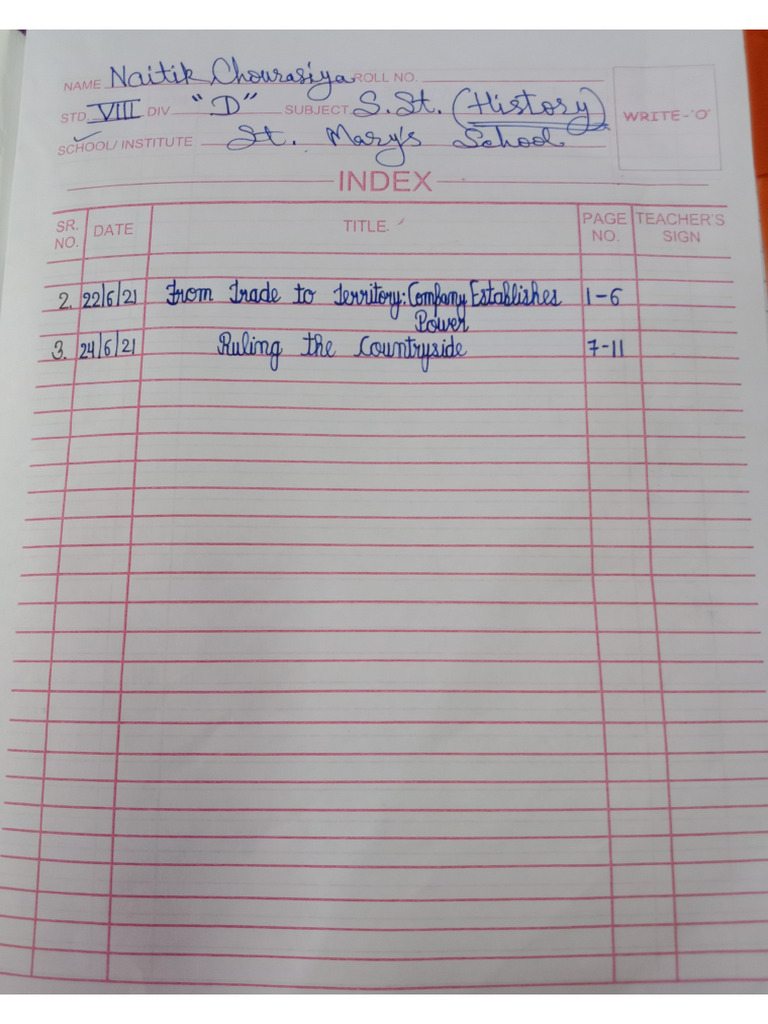 NAME Naitik Chourasiya ROLL NO.
STD. VIII DIV "D" SUBJECT S.St. (History) WRITE-'O'
SCHOOL/INSTITUTE St. Mary's School
INDEX
SR. NO. DATE TITLE. PAGE NO. TEACHER'S SIGN
2. 22/6/21 From Trade to Territory: Company Establishes 1-6
Power
3. 24/6/21 Ruling the Countryside 7-11